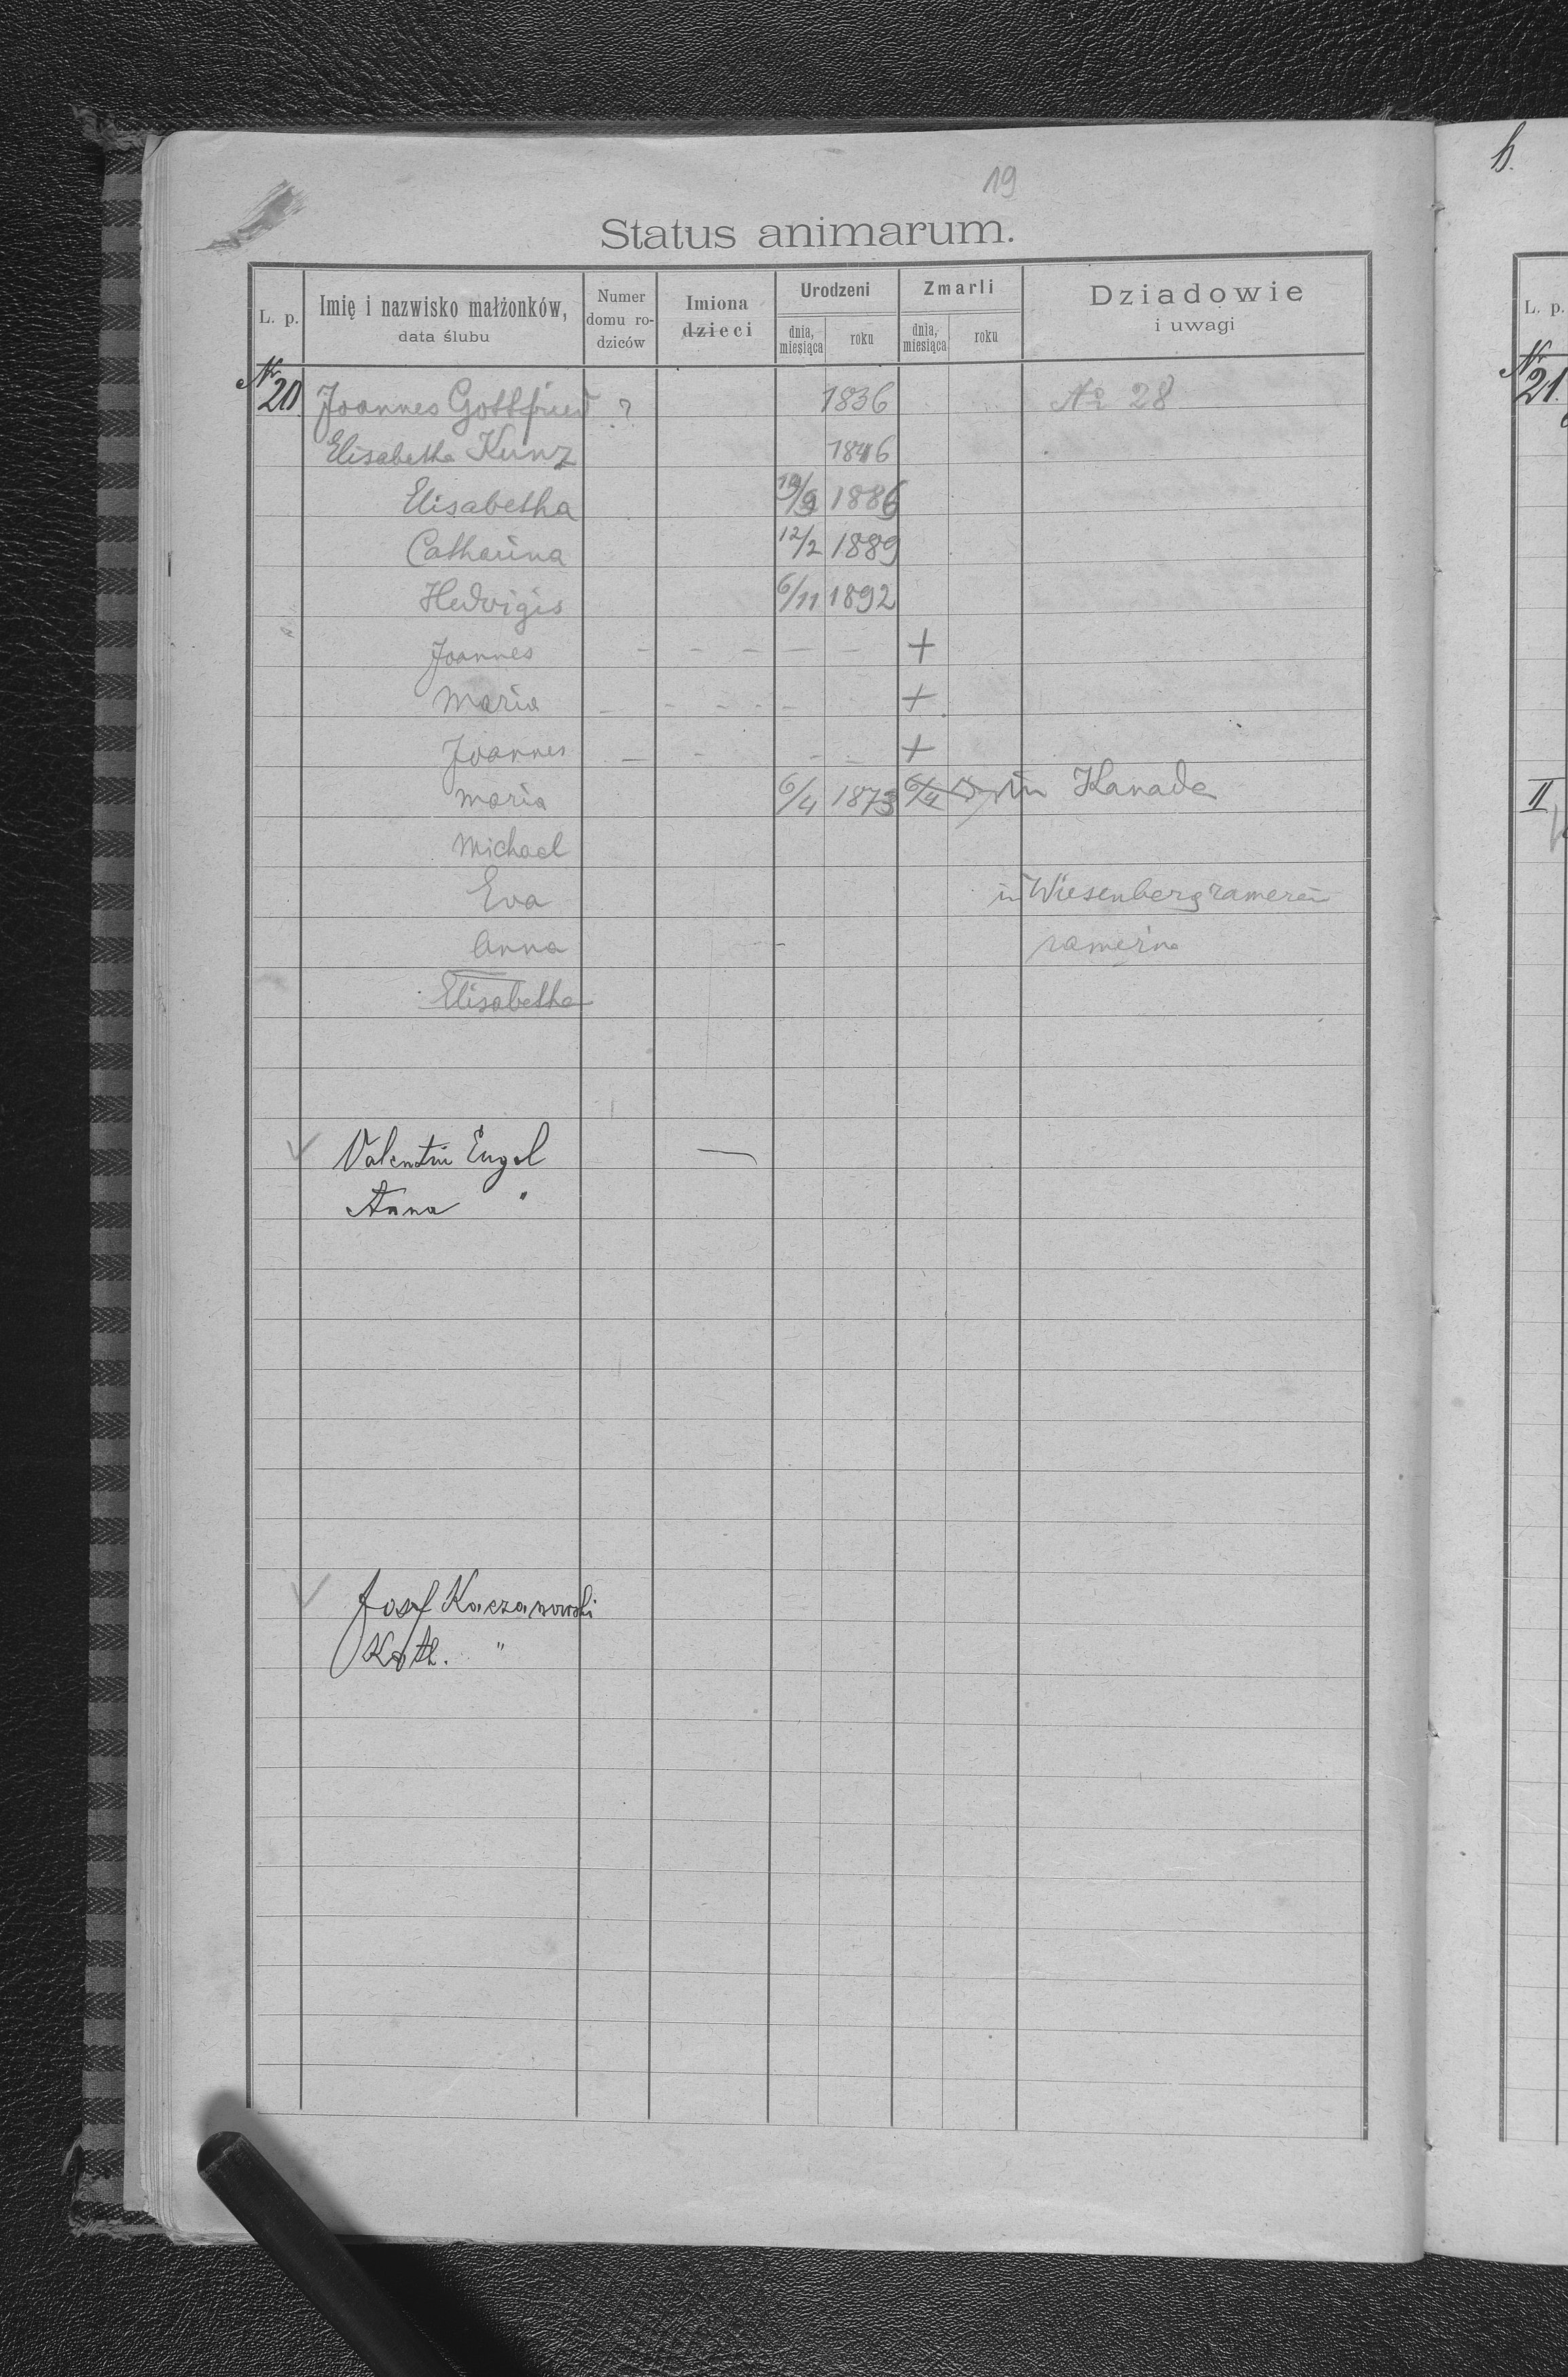 19
Status animarum.
L. p. Imię i nazwisko małżonków, data ślubu Numer domu rodziców Imiona dzieci Urodzeni dnia, miesiąca roku Zmarli dnia, miesiąca roku Dziadowie i uwagi
Nr 20 Joannes Gottfried ? 1836 No 28
Elisabetha Kunz 1846
Elisabetha 1886
Catharina 12/2 1889
Hedvigis 6/11 1892
Joannes - - - - - - +
Maria - - - - - +
Joannes - - - - +
Maria 6/4 1873 6/4 in Kanada
Michael
Eva in Wiesenberg
Anna -
Elisabetha
Valentin Engel —
Anna "
Josef Kaczanowski
Kath. "
h.
L. p.
Nr 21.
II